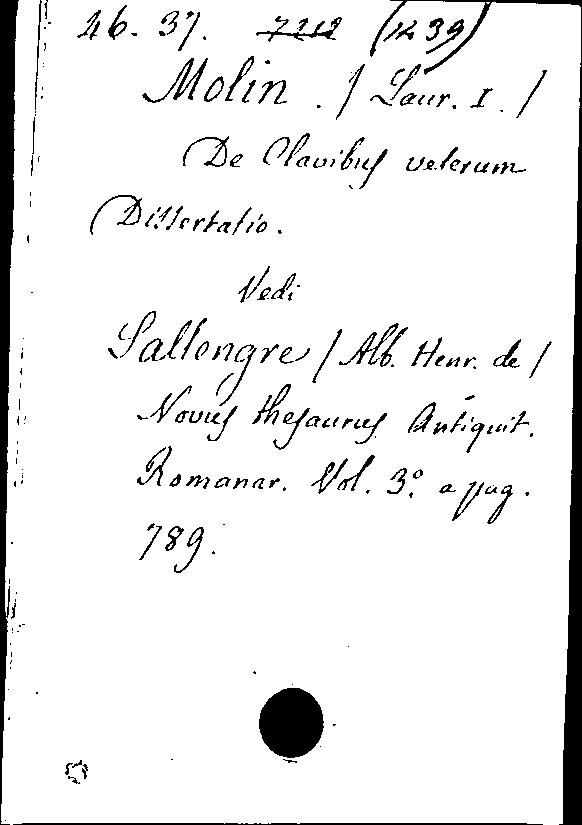 46. 37. 7212 (1239)
Molin. / Laur. I. /
De Clavibus veterum
Dissertatio.
Vedi
Sallengre / Alb. Henr. de /
Novus thesaurus Antiquit.
Romanar. Vol. 3º. a pag.
789.